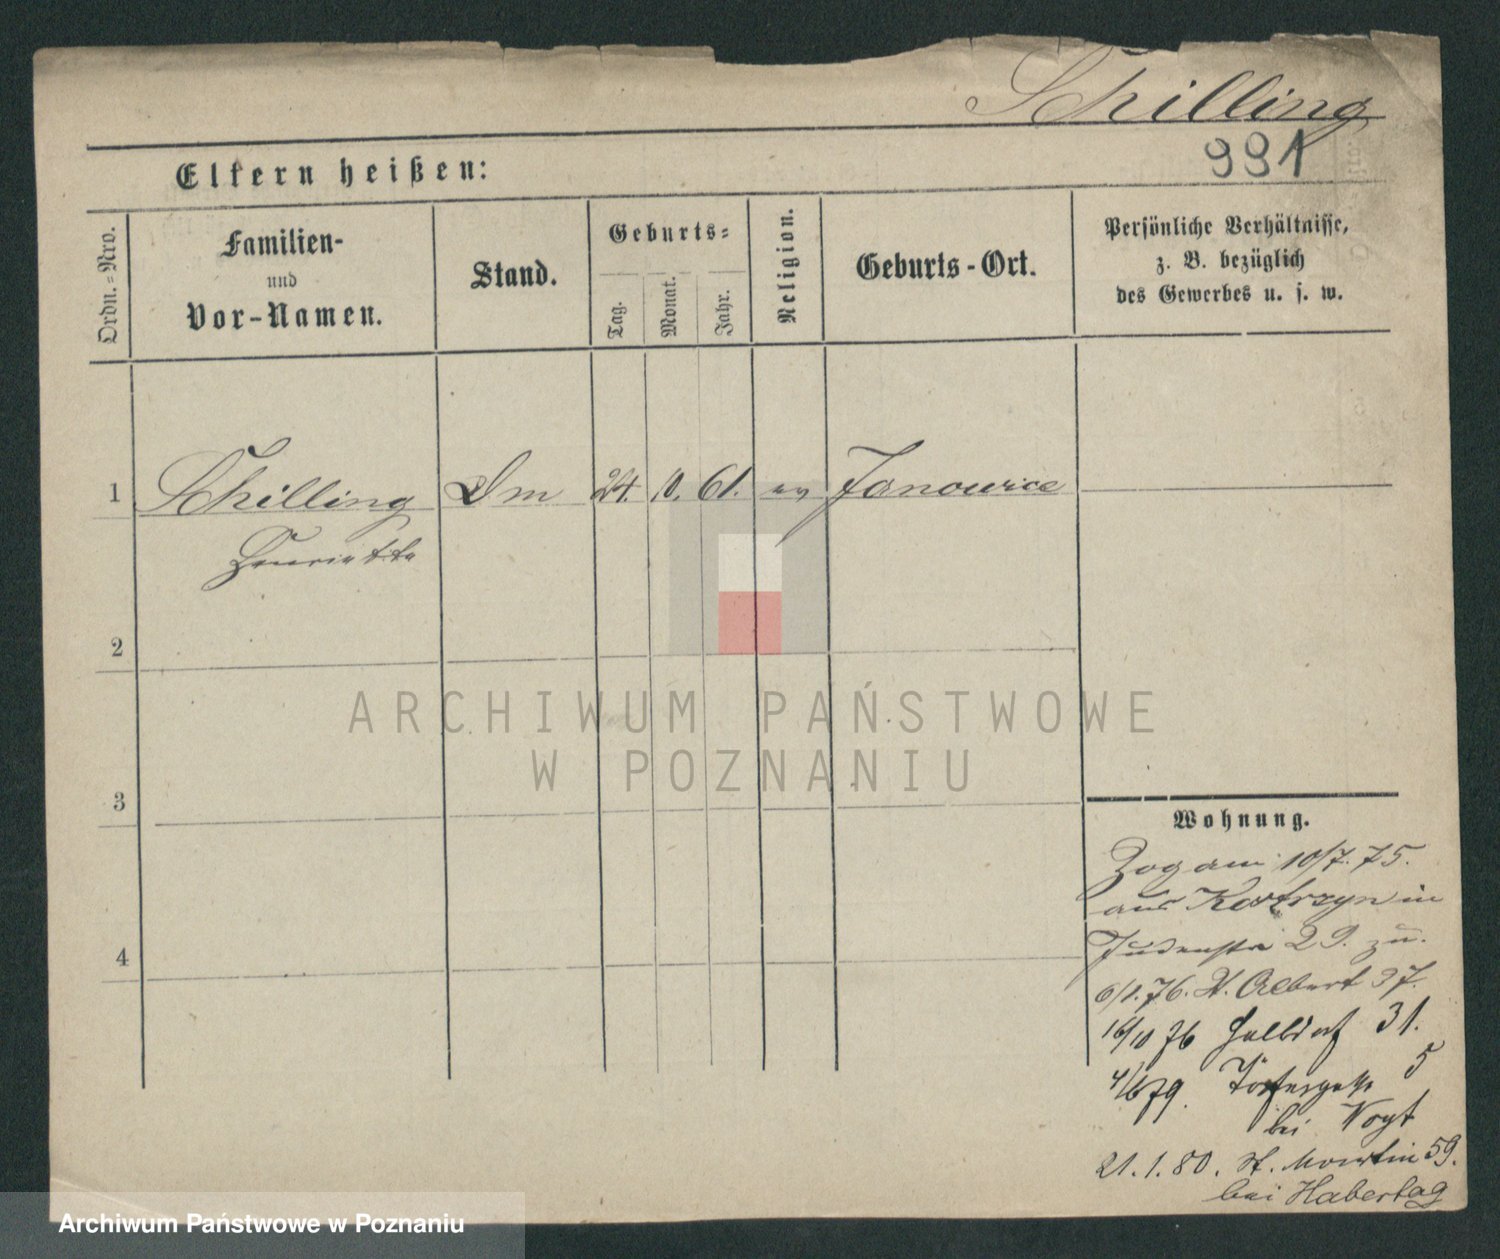 Schilling
991
Eltern heißen:
Ordn.-Nro.
Familien-
und
Vor-Namen.
Stand.
Geburts-
Tag.
Monat.
Jahr.
Religion.
Geburts-Ort.
Persönliche Verhältnisse,
z. B. bezüglich
des Gewerbes u. s. w.
1 Schilling Dm 24. 10. 61. ev Janowice
Henriette
2
3
4
ARCHIWUM PAŃSTWOWE
W POZNANIU
Wohnung.
Zog am 10/7. 75.
aus Kostrzyn in
Judenstr 29. zu.
6/1. 76. St. Adalbert 37.
16/10 76 Halbdorf 31.
4/6 79. 5
bei Vogt
21.1.80. St. Martin 59.
bei Habertag
Archiwum Państwowe w Poznaniu